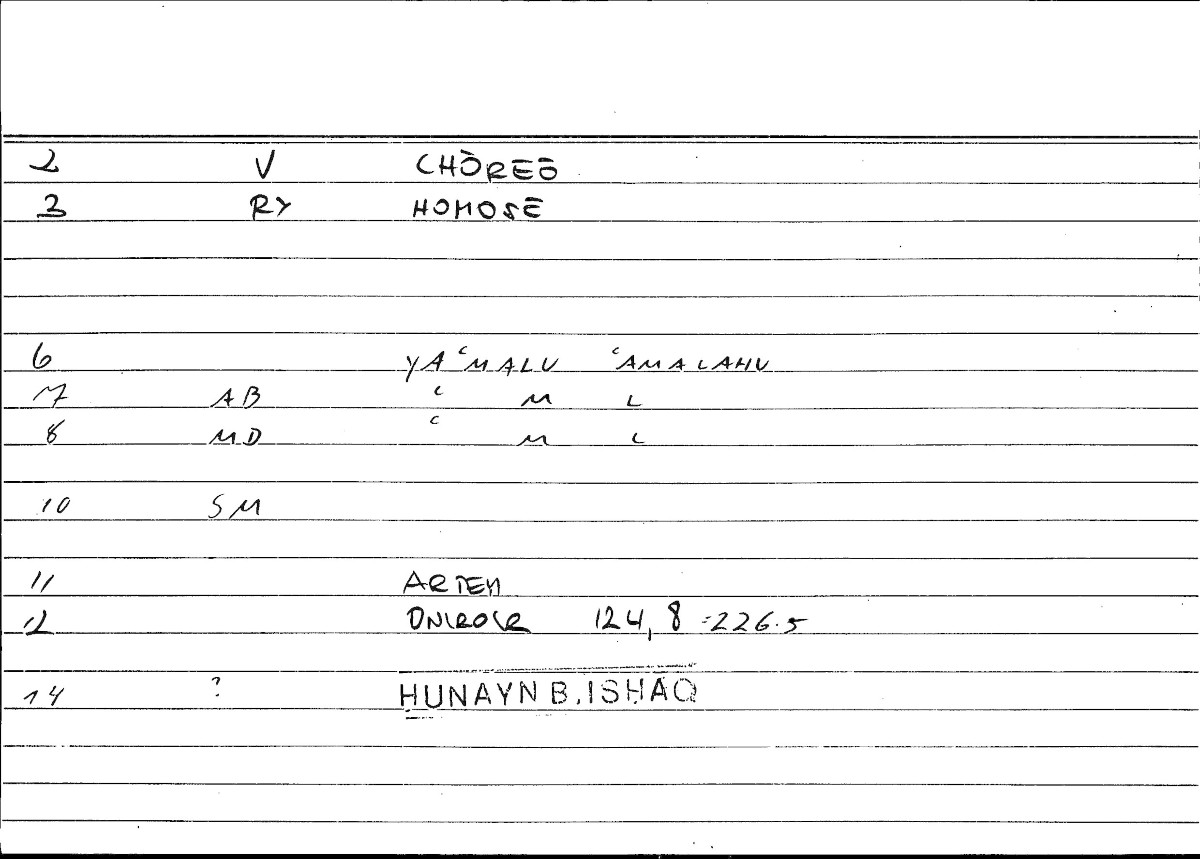 2 V CHŌREŌ
3 RY HOMOSE
6 YAʿMALU ʿAMALAHU
7 AB ʿ M L
8 MD ʿ M L
10 SM
11 ARTEM
12 ONIROCR 124,8 =226.5
14 ? ḤUNAYN B. ISḤĀQ